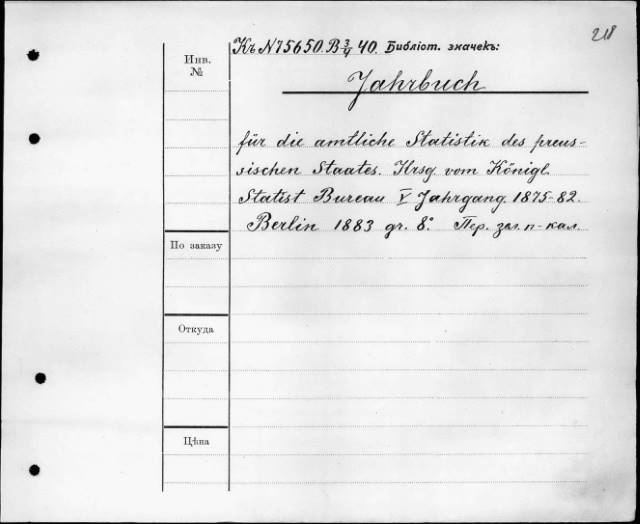 218
Къ N 75650. B 3/4 40. Библіот. значекъ:
Инв.
№
Jahrbuch
für die amtliche Statistik des preus-
sischen Staates. Hrsg. vom Königl.
Statist Bureau V Jahrgang. 1875-82.
Berlin 1883 gr. 8.° Пер. зал. п-кал.
По заказу
Откуда
Цѣна